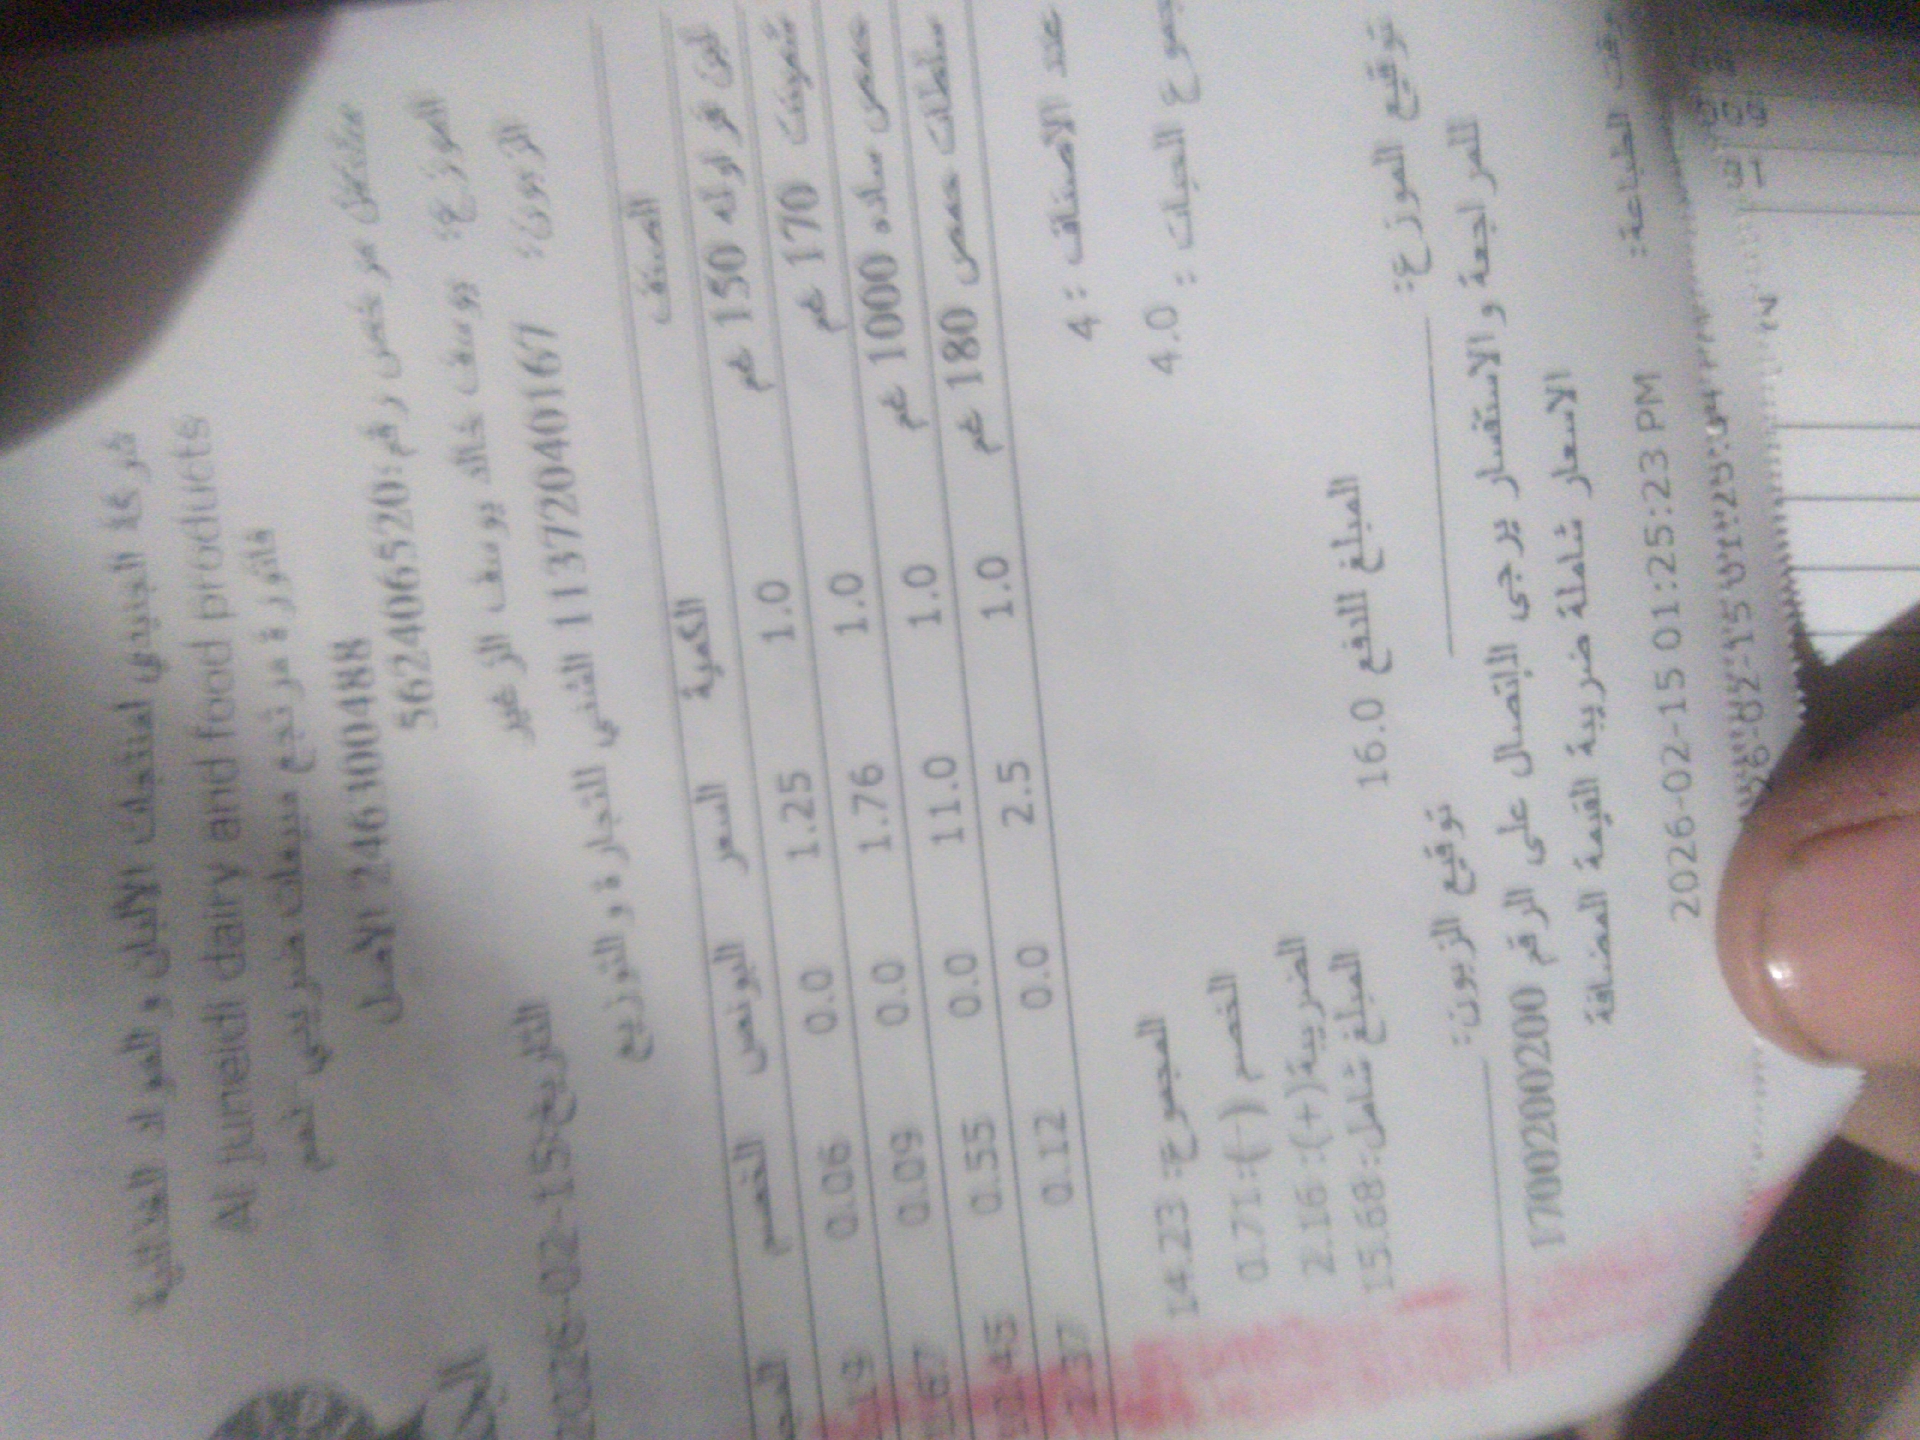 شركة الجنيدي لمنتجات الالبان و المواد الغذائية
Al juneidi dairy and food products
فاتورة مرتجع مبيعات ضريبي خصم
246300488 الاصل
مشتغل مرخص رقم:562406520
الموزع: يوسف خالد يوسف الزغير
التاريخ:2026-02-15
الزبون: 1137204010167 المثنى للتجارة و التوزيع
الصنف الكمية السعر البونص الخصم
لبن فراوله 150 غم 1.0 1.25 0.0 0.06
شمينت 170 غم 1.0 1.76 0.0 0.09
حمص ساده 1000 غم 1.0 11.0 0.0 0.55
سلطات حمص 180 غم 1.0 2.5 0.0 0.12 2.37
عدد الاصناف : 4
المجموع: 14.23
مجموع الحبات : 4.0
الخصم (-):0.71
الضريبة(+):2.16
المبلغ شامل:15.68
المبلغ للدفع 16.0
توقيع الموزع: توقيع الزبون:
للمراجعة والاستفسار يرجى الإتصال على الرقم 1700200200
الاسعار شاملة ضريبة القيمة المضافة
وقت الطباعة: 2026-02-15 01:25:23 PM